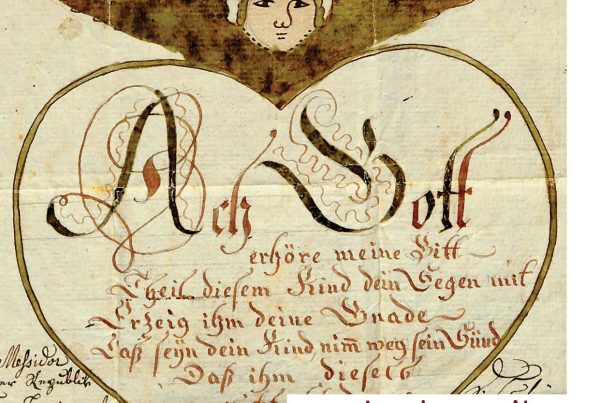 Ach Gott
erhöre meine Bitt
Theil diesem Kind dein Segen mit
Erzeig ihm deine Gnade
Laß seyn dein Kind nim̅ weg sein Sünd
Daß ihm dieselb
Messidor
der Republik